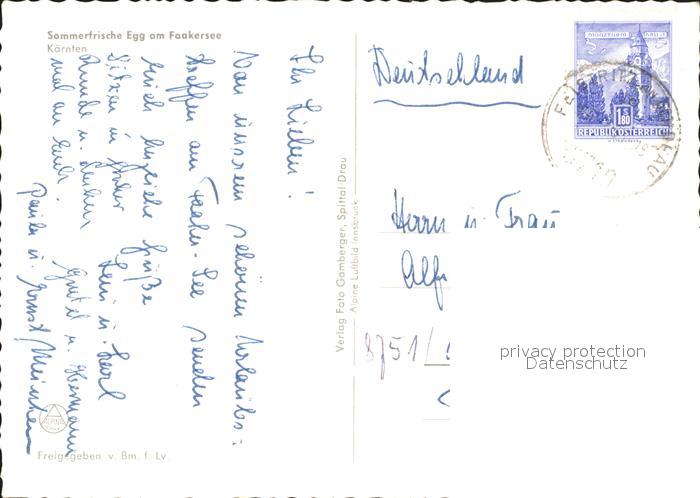 Sommerfrische Egg am Faakersee
Kärnten
Ihr Lieben!
Von unserem schönen Urlaubs-
treffen am Faaker-See senden
Euch herzliche Grüße
Sitzen in froher
Runde u. denken
mal an Euch.
Leni u. Karl
Gretel u. Hermann
Paula u. Ernst
Freigegeben v. Bm. f. Lv.
ALPINE
Verlag Foto Gamberger, Spittal Drau
Alpine Luftbild Innsbruck
Deutschland
MÜNZTURM
HALL
1.80
REPUBLIK ÖSTERREICH
Herrn u. Frau
Alfr
8751/
privacy protection
Datenschutz